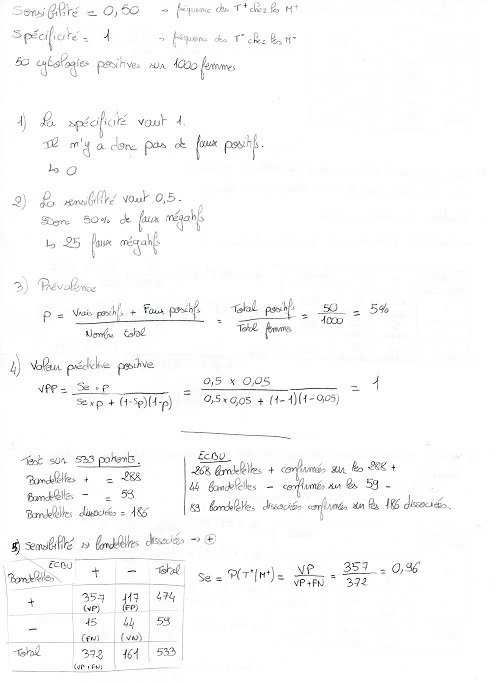 Sensibilité = 0,50 → fréquence des T+ chez les M+
Spécificité = 1 → fréquence des T- chez les M-
50 cytologies positives sur 1000 femmes
1) La spécificité vaut 1.
Il n'y a donc pas de faux positifs.
↳ 0
2) La sensibilité vaut 0,5.
Donc 50% de faux négatifs
↳ 25 faux négatifs
3) Prévalence
P = Vrais positifs + Faux positifs / Nombre total = Total positifs / Total femmes = 50 / 1000 = 5%
4) Valeur prédictive positive
VPP = Se × p / Se × p + (1-Sp)(1-p) = 0,5 × 0,05 / 0,5 × 0,05 + (1-1)(1-0,05) = 1
Test sur 533 patients.
Bandelettes + = 288
Bandelettes - = 59
Bandelettes dissociées = 186
ECBU
268 bandelettes + confirmées sur les 288 +
44 bandelettes - confirmées sur les 59 -
89 bandelettes dissociées confirmées sur les 186 dissociées.
5) Sensibilité si bandelettes dissociées → +
ECBU + - Total
Bandelettes
+ 357 (VP) 117 (FP) 474
- 15 (FN) 44 (VN) 59
Total 372 (VP+FN) 161 533
Se = P(T+/M+) = VP / VP+FN = 357 / 372 = 0,96